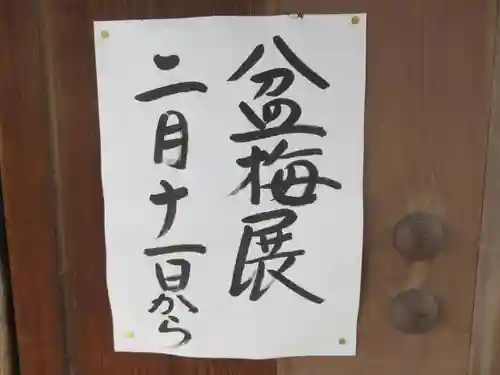 盆梅展
二月十一日から